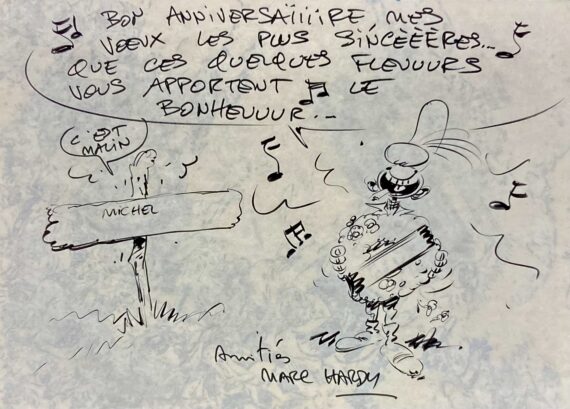 BON ANNIVERSAIIIIRE MES
VOEUX LES PLUS SINCÈÈÈRES...
QUE CES QUELQUES FLEUUURS
VOUS APPORTENT LE
BONHEUUUR...
C'EST
MALIN
MICHEL
Amitiés
MARC HARDY